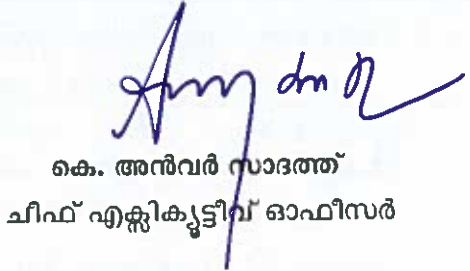 കെ. അൻവർ സാദത്ത്
ചീഫ് എക്സിക്യൂട്ടീവ് ഓഫീസർ